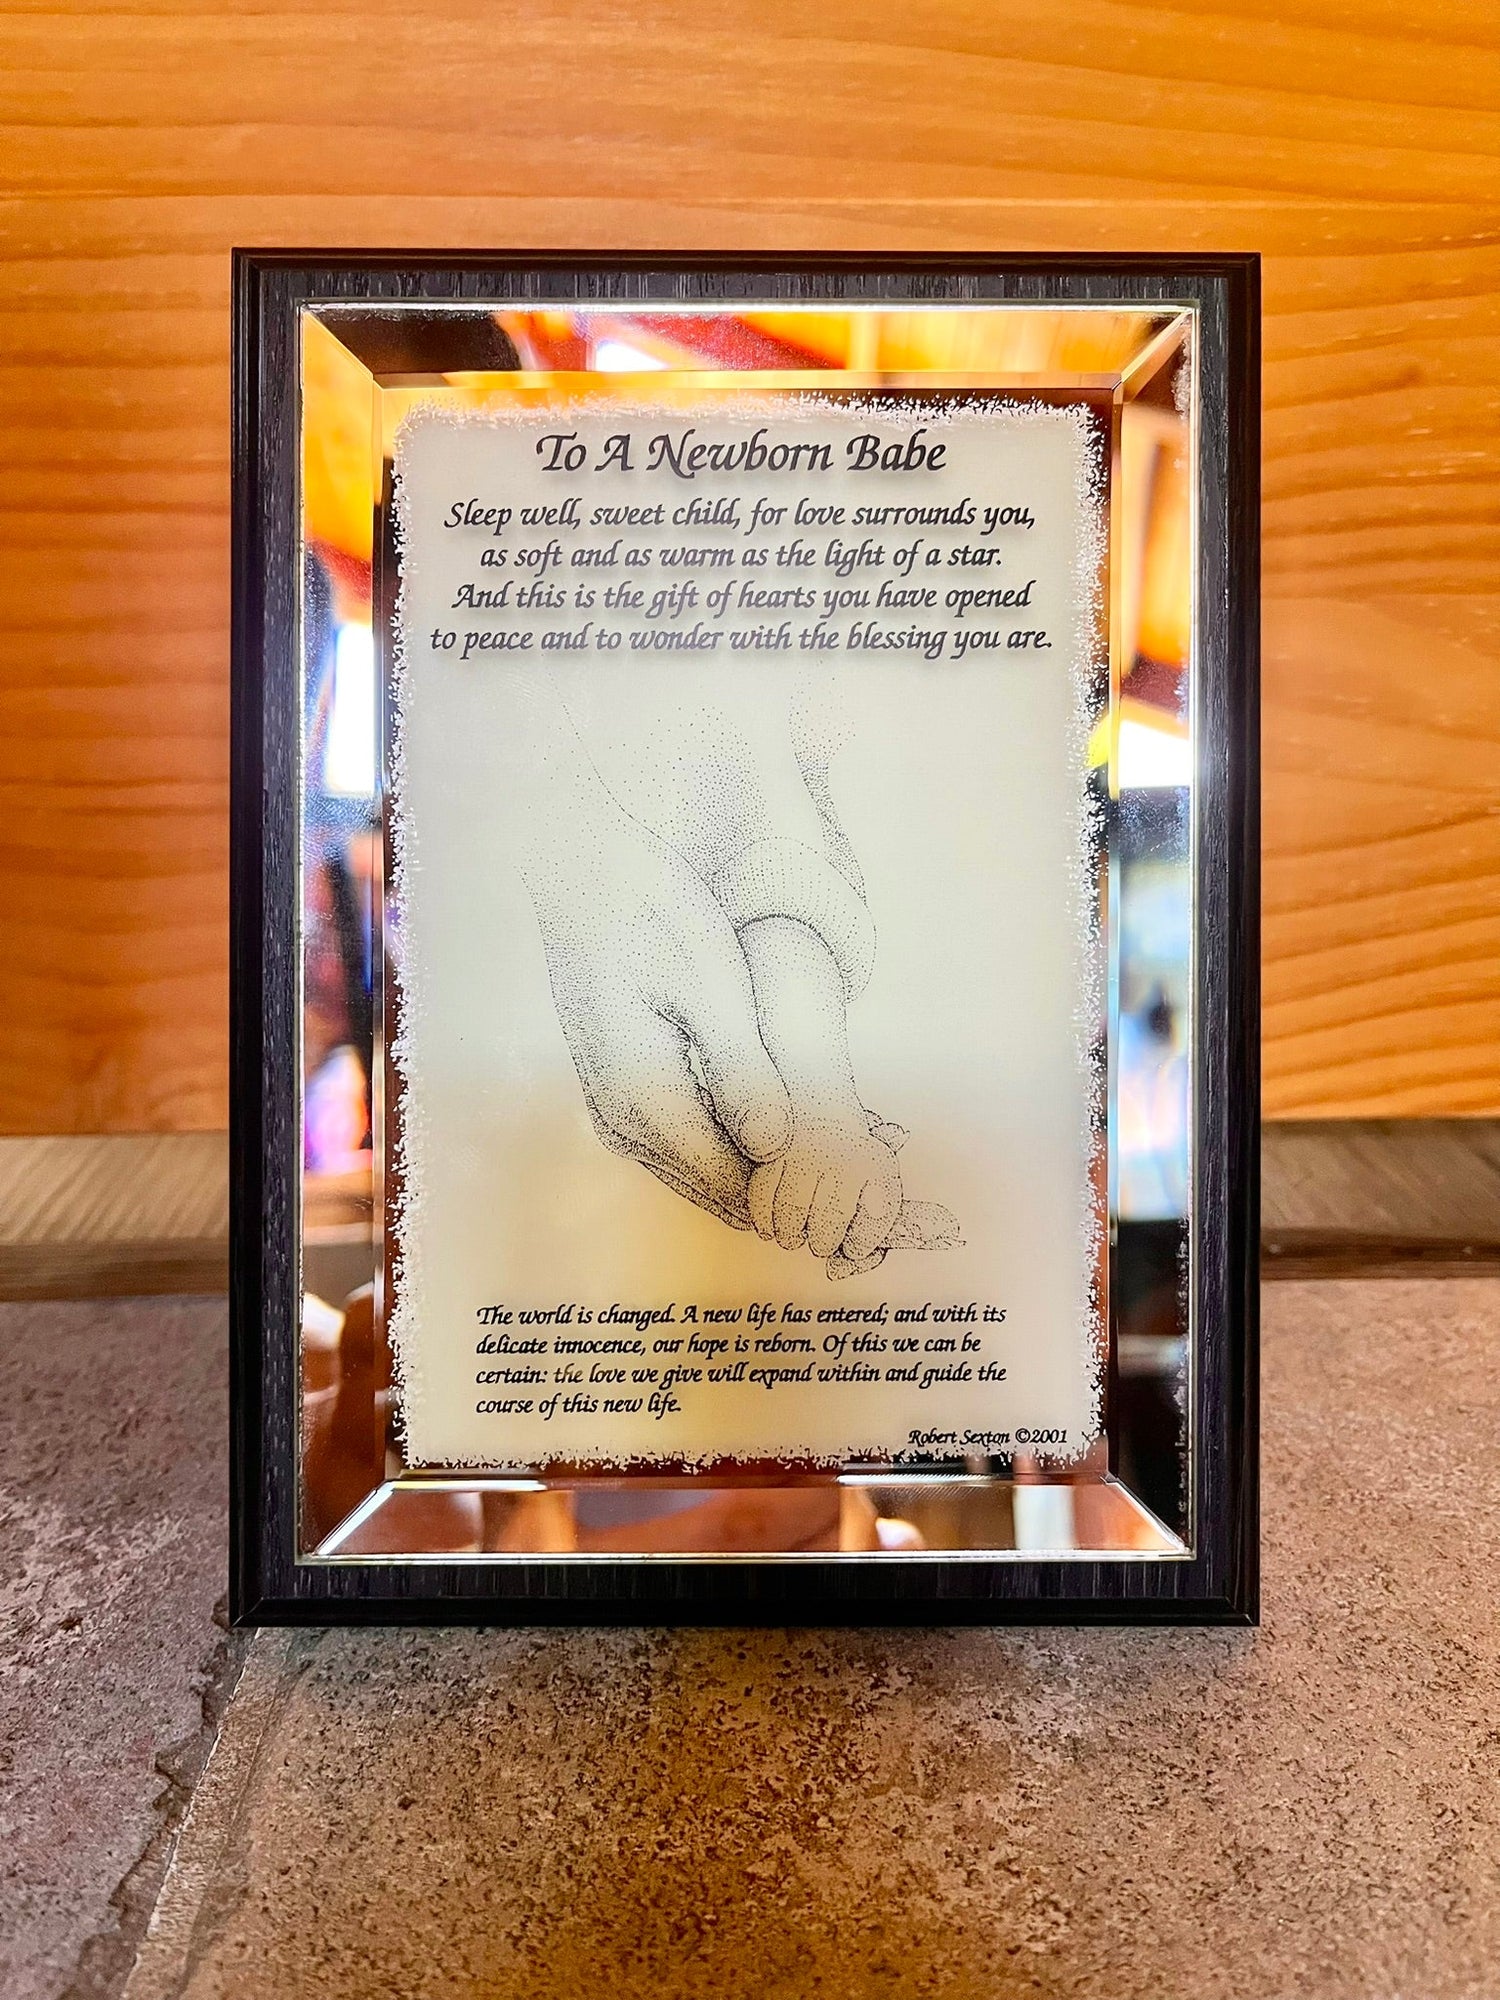 To A Newborn Babe
Sleep well, sweet child, for love surrounds you,
as soft and as warm as the light of a star.
And this is the gift of hearts you have opened
to peace and to wonder with the blessing you are.
The world is changed. A new life has entered; and with its
delicate innocence, our hope is reborn. Of this we can be
certain: the love we give will expand within and guide the
course of this new life.
Robert Sexton ©2001